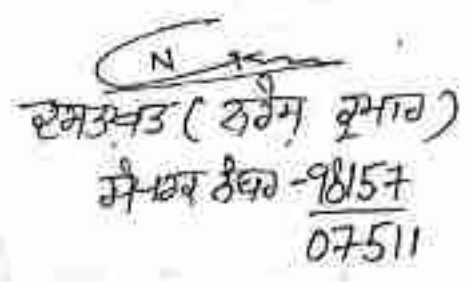 N K
ਦਸਤਖਤ ( ਨਰੈਸ਼ ਕੁਮਾਰ )
ਸੰਪਰਕ ਨੰਬਰ -98157
07511